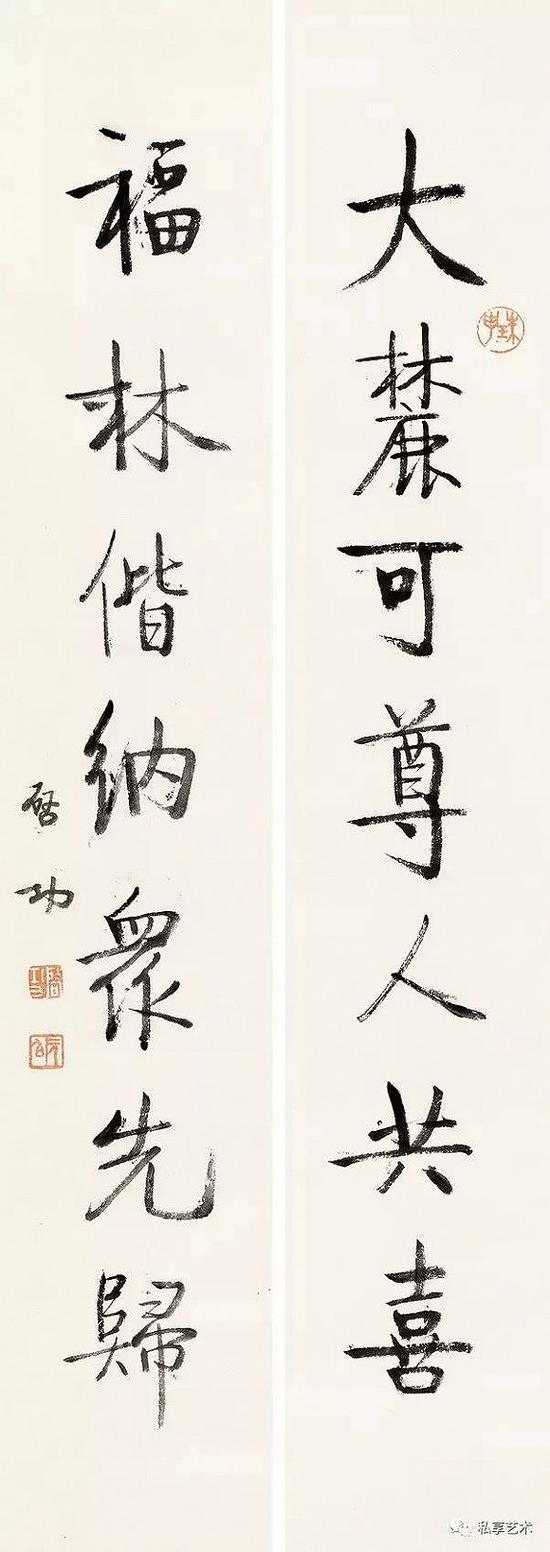 大麓可尊人共喜
福林偕纳眾先歸
启功
私享艺术